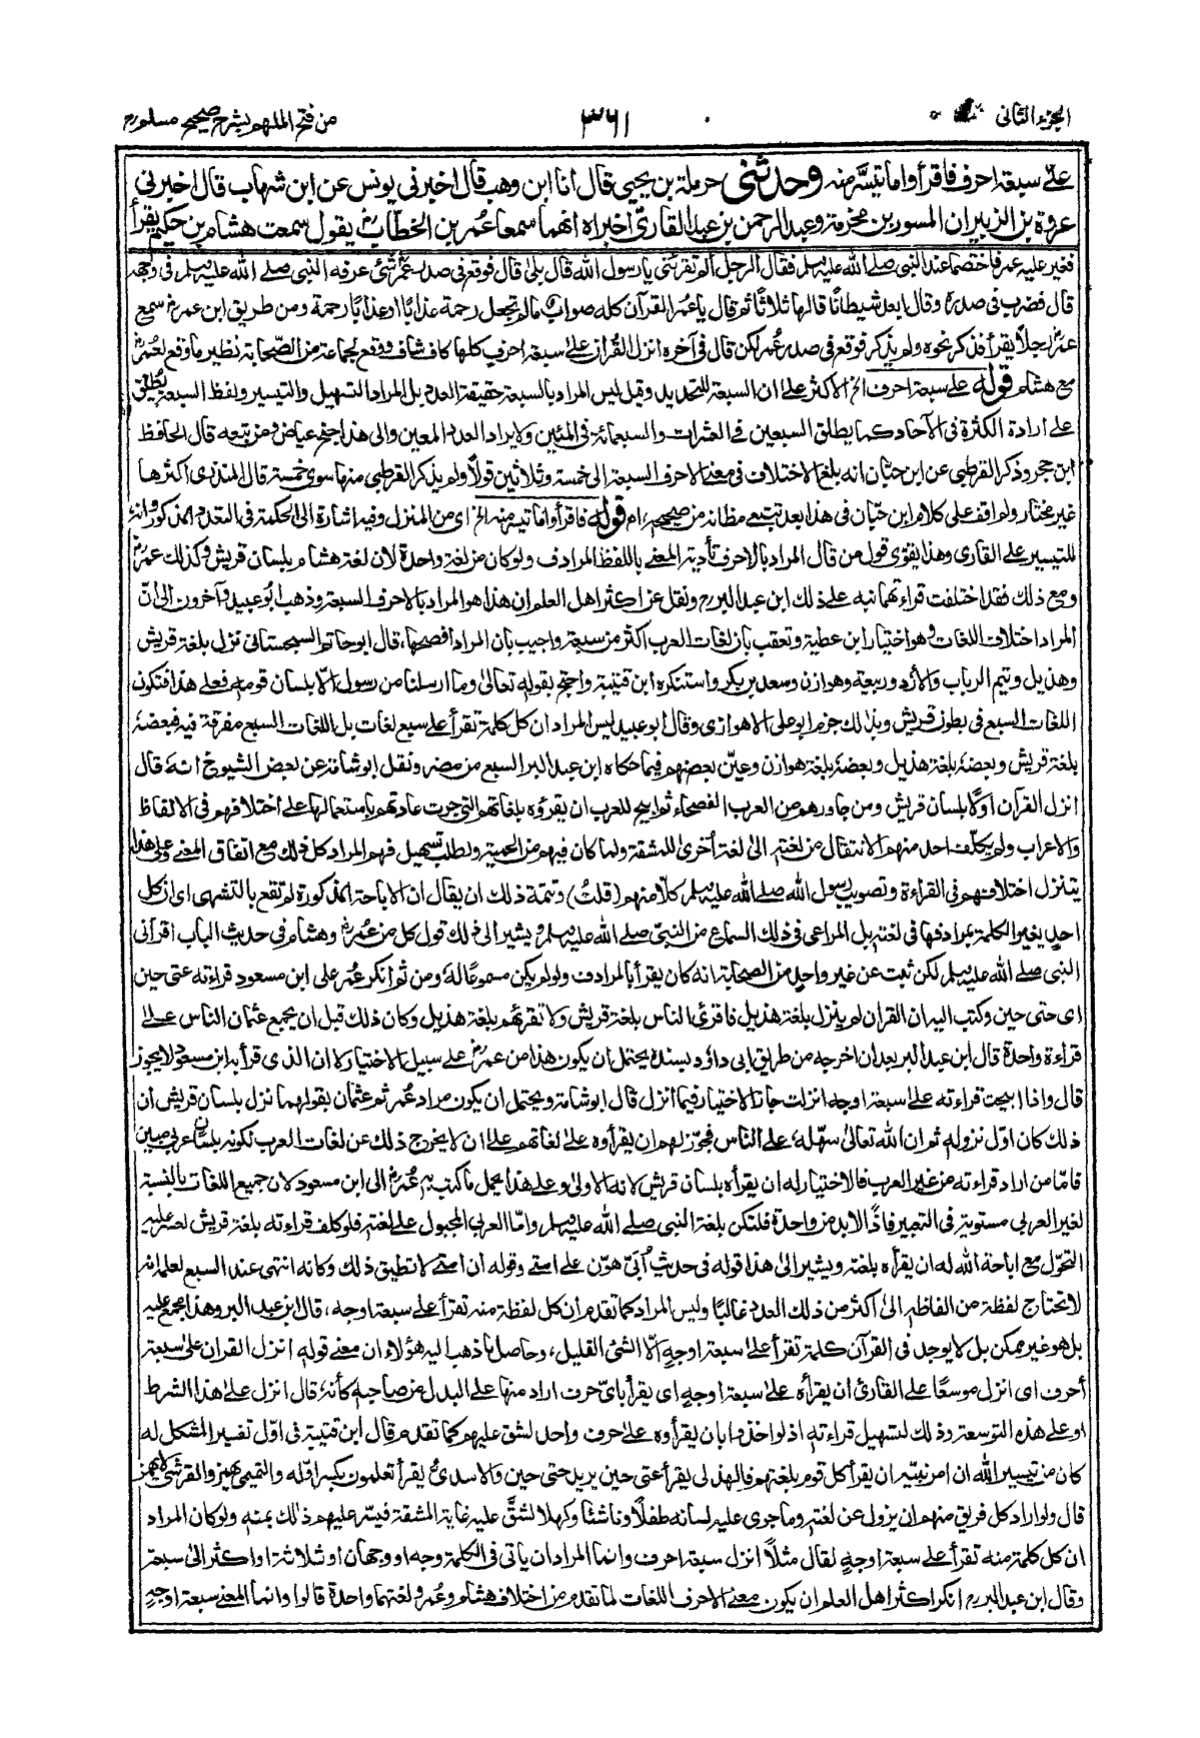 الجزء الثانى
٣٦١
من فتح الملهم بشرح صحيح مسلم
على سبعة احرف فاقرأوا ما تيسّر منه وحدثنى حرملة بن يحيى قال انا ابن وهب قال اخبرنى يونس عن ابن شهاب قال اخبرنى
عروة بن الزبير ان المسور بن مخرمة وعبد الرحمن بن عبد القارىّ اخبراه انهما سمعا عُمر بن الخطاب يقول سمعت هشام بن حكيم يقرأ
فغير عليه عمر فاختصما عند النبى صلى الله عليه وسلم فقال الرجل ألم تقرئنى يا رسول الله قال بلى قال فوقع فى صدر عمر شئ عرفه النبى صلى الله عليه وسلم فى وجهه
قال فضرب فى صدره وقال ابعد شيطانًا قالها ثلاثًا ثم قال يا عمر القرآن كله صواب مالم تجعل رحمة عذابًا او عذابًا رحمة ومن طريق ابن عمر سمع
عمر رجلًا يقرأ فذكر نحوه ولم يذكر فوقع فى صدر عُمر لكن قال فى آخره انزل القرآن على سبعة احرف كلها كاف شاف ووقع لجماعة من الصحابة نظير ما وقع لعُمر
مع هشام قوله على سبعة احرف الخ الاكثر على ان السبعة للتحديد وقيل ليس المراد بالسبعة حقيقة العدد بل المراد التسهيل والتيسير ولفظ السبعة يطلق
على ارادة الكثرة فى الآحاد كما يطلق السبعين فى العشرات والسبعمائة فى المئين ولا يراد العدد المعين والى هذا جنح عياض ومن تبعه قال الحافظ
ابن حجر وذكر القرطبى عن ابن حبّان انه بلغ الاختلاف فى معنى الاحرف السبعة الى خمسة وثلاثين قولًا ولم يذكر القرطبى منها سوى خمسة قال المنذرى اكثرها
غير مختار ولم اقف على كلام ابن حبّان فى هذا بعد تتبعى مظانه من صحيحه، اه قوله فاقرأوا ما تيسر منه الخ اى من المنزل وفيه اشارة الى الحكمة فى التعدد المذكور وانه
للتيسير على القارى وهذا يقوى قول من قال المراد بالاحرف تأدية المعنى باللفظ المرادف ولو كان من لغة واحدة لان لغة هشام بلسان قريش وكذلك عمر
ومع ذلك فقد اختلفت قراءتهما نبه على ذلك ابن عبد البر ونقل عن اكثر اهل العلم ان هذا هو المراد بالاحرف السبعة وذهب ابو عبيد وآخرون الى انّ
المراد اختلاف اللغات وهو اختيار ابن عطية وتعقب بان لغات العرب اكثر من سبعة واجيب بان المراد افصحها، قال ابو حاتم السجستانى نزل بلغة قريش
وهذيل وتيم الرباب والأزد وربيعة وهوازن وسعد بن بكر واستنكره ابن قتيبة واحتج بقوله تعالى وما ارسلنا من رسول الا بلسان قومه فعلى هذا فتكون
اللغات السبع فى بطون قريش وبذلك جزم ابو على الاهوازى وقال ابو عبيد ليس المراد ان كل كلمة تقرأ على سبع لغات بل اللغات السبع مفرقة فيه فبعضه
بلغة قريش وبعضه بلغة هذيل وبعضه بلغة هوازن وعيّن بعضهم فيما حكاه ابن عبد البر السبع من مضر ونقل ابو شامة عن بعض الشيوخ انه قال
انزل القرآن اولًا بلسان قريش ومن جاورهم من العرب الفصحاء ثم ابيح للعرب ان يقرؤه بلغاتهم التى جرت عادتهم باستعمالها على اختلافهم فى الالفاظ
والاعراب ولم يكلّف احد منهم الانتقال من لغته الى لغة اخرى للمشقة ولما كان فيهم من الحمية ولطلب تسهيل فهم المراد كل ذلك مع اتفاق المعنى وعلى هذا
يتنزل اختلافهم فى القراءة وتصويب رسول الله صلى الله عليه وسلم كلًا منهم (قلتُ) وتتمة ذلك ان يقال ان الاباحة المذكورة لم تقع بالتشهى اى ان كل
احد يغير الكلمة بمرادفها فى لغته بل المراعى فى ذلك السماع من النبىّ صلى الله عليه وسلم ويشير الى ذلك قول كل من عُمر وهشام فى حديث الباب اقرأنى
النبى صلى الله عليه وسلم لكن ثبت عن غير واحد من الصحابة انه كان يقرأ بالمرادف ولو لم يكن مسموعًا له ومن ثم انكر عُمر على ابن مسعود قراءته عتى حين
اى حتى حين وكتب اليه ان القرآن لم ينزل بلغة هذيل فاقرئ الناس بلغة قريش ولا تقرئهم بلغة هذيل وكان ذلك قبل ان يجمع عثمان الناس على
قراءة واحدة قال ابن عبد البر بعد ان اخرجه من طريق ابى داؤد بسنده يحتمل ان يكون هذا من عمر على سبيل الاختيار لا ان الذى قرأ به ابن مسعود لا يجوز
قال واذا ابيحت قراءته على سبعة اوجه انزلت جاز الاختيار فيما انزل قال ابو شامة ويحتمل ان يكون مراد عُمر ثم عثمان بقولهما نزل بلسان قريش ان
ذلك كان اوّل نزوله ثم ان الله تعالى سهّله على الناس فجوّز لهم ان يقرأوه على لغاتهم على ان لا يخرج ذلك عن لغات العرب لكونه بلسان عربى مبين
فامّا من اراد قراءته من غير العرب فالاختيار له ان يقرأه بلسان قريش لانه الاولى وعلى هذا يحمل ما كتب به عُمر الى ابن مسعود لان جميع اللغات بالنسبة
لغير العربى مستوية فى التعبير فاذًا لابد من واحدة فلتكن بلغة النبى صلى الله عليه وسلم وامّا العربى المجبول على لغته فلو كلف قراءته بلغة قريش لعسر عليه
التحوّل مع اباحة الله له ان يقرأه بلغته ويشير الى هذا قوله فى حديث اُبىّ هوّن على امتى وقوله ان امتى لا تطيق ذلك وكانه انتهى عند السبع لعلمه انه
لا تحتاج لفظة من الفاظه الى أكثر من ذلك العدد غالبًا وليس المراد كما تقدم ان كل لفظة منه تقرأ على سبعة اوجه، قال ابن عبد البر وهذا مجمع عليه
بل هو غير ممكن بل لا يوجد فى القرآن كلمة تقرأ على سبعة اوجه الّا الشئ القليل، وحاصل ما ذهب اليه هؤلاء ان معنى قوله انزل القرآن على سبعة
أحرف اى انزل موسعًا على القارئ ان يقرأه على سبعة اوجه اى يقرأ باىّ حرف اراد منها على البدل من صاحبه كأنه قال انزل على هذا الشرط
او على هذه التوسعة وذلك لتسهيل قراءته اذ لو اخذوا بان يقرأوه على حرف واحد لشق عليهم كما تقدم قال ابن قتيبة فى اوّل تفسير المشكل له
كان من تيسير الله ان امر نبيّه ان يقرأ كل قوم بلغتهم فالهذلى يقرأ عتى حين يريد حتى حين والاسدىّ يقرأ تعلمون بكسر اوّله والتميمى يهمز والقرشى لا يهمز
قال ولو اراد كل فريق منهم ان يزول عن لغته وما جرى عليه لسانه طفلًا وناشئًا وكهلًا لشقّ عليه غاية المشقة فيسّر عليهم ذلك بمنه ولو كان المراد
ان كل كلمة منه تقرأ على سبعة اوجه لقال مثلًا انزل سبعة احرف وانما المراد ان يأتى فى الكلمة وجه او وجهان او ثلاثة او اكثر الى سبعة
وقال ابن عبد البر انكر اكثر اهل العلم ان يكون معنى الاحرف اللغات لما تقدم من اختلاف هشام وعُمر ولغتهما واحدة قالوا وانما المعنى سبعة اوجه